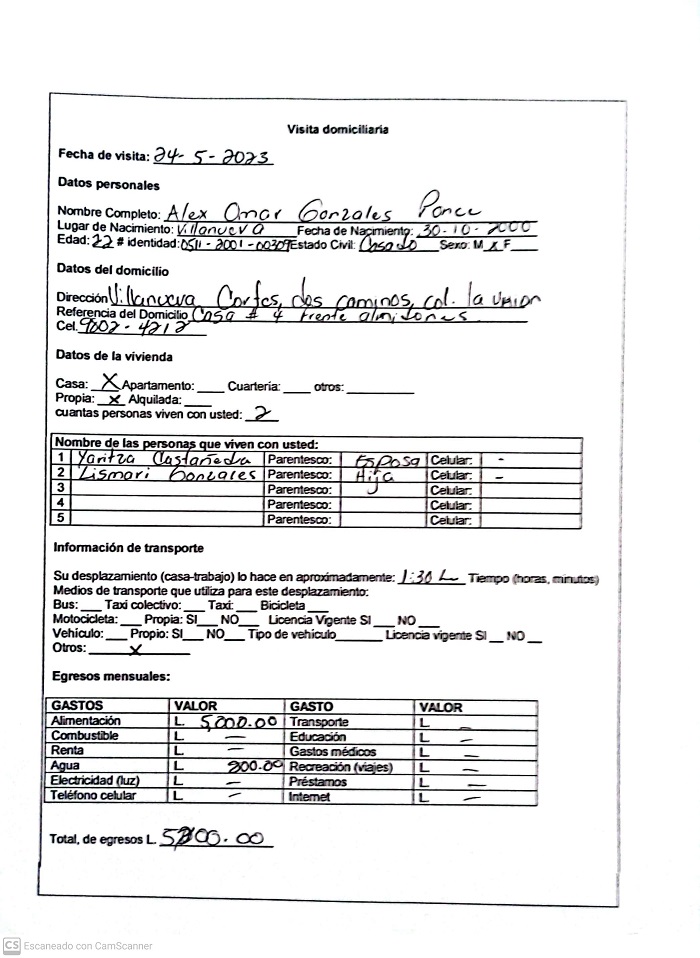 Visita domiciliaria
Fecha de visita: 24-5-2023
Datos personales
Nombre Completo: Alex Omar Gonzales Ponce
Lugar de Nacimiento: Villanueva Fecha de Nacimiento: 30-10-2000
Edad: 22 # identidad: 0511-2001-00309 Estado Civil: Casado Sexo: M x F
Datos del domicilio
Dirección Villanueva Cortes, dos caminos, col. la union
Referencia del Domicilio Casa # 4 frente
Cel. 9002-4212
Datos de la vivienda
Casa: X Apartamento: ___ Cuartería: ___ otros: ___
Propia: x Alquilada: ___
cuantas personas viven con usted: 2
Nombre de las personas que viven con usted:
1 Yaritza Castañeda Parentesco: Esposa Celular: -
2 Lismari Gonzales Parentesco: Hija Celular: -
3 Parentesco: Celular:
4 Parentesco: Celular:
5 Parentesco: Celular:
Información de transporte
Su desplazamiento (casa-trabajo) lo hace en aproximadamente: 1:30 h Tiempo (horas, minutos)
Medios de transporte que utiliza para este desplazamiento:
Bus: ___ Taxi colectivo: ___ Taxi: ___ Bicicleta ___
Motocicleta: ___ Propia: SI ___ NO ___ Licencia Vigente SI ___ NO ___
Vehículo: ___ Propio: SI ___ NO ___ Tipo de vehículo ___ Licencia vigente SI __ NO __
Otros: x
Egresos mensuales:
GASTOS VALOR GASTO VALOR
Alimentación L 5,000.00 Transporte L -
Combustible L - Educación L -
Renta L - Gastos médicos L -
Agua L 200.00 Recreación (viajes) L -
Electricidad (luz) L - Préstamos L -
Teléfono celular L - Internet L -
Total, de egresos L. 5200.00
CS Escaneado con CamScanner